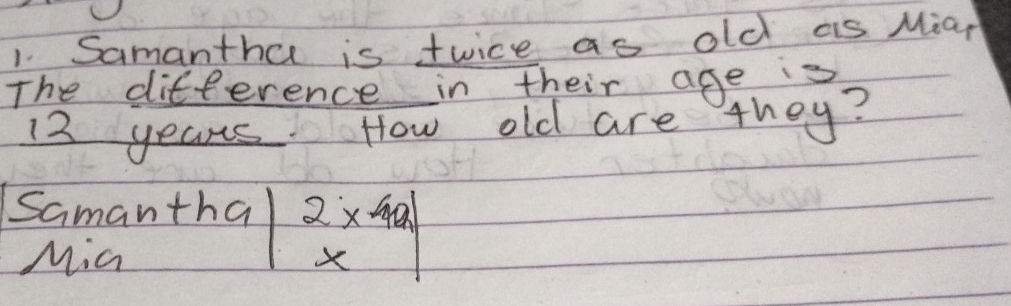 1. Samantha is twice as old as Mia,
The difference in their age is
12 years. How old are they?
Samantha 2x
Mia x